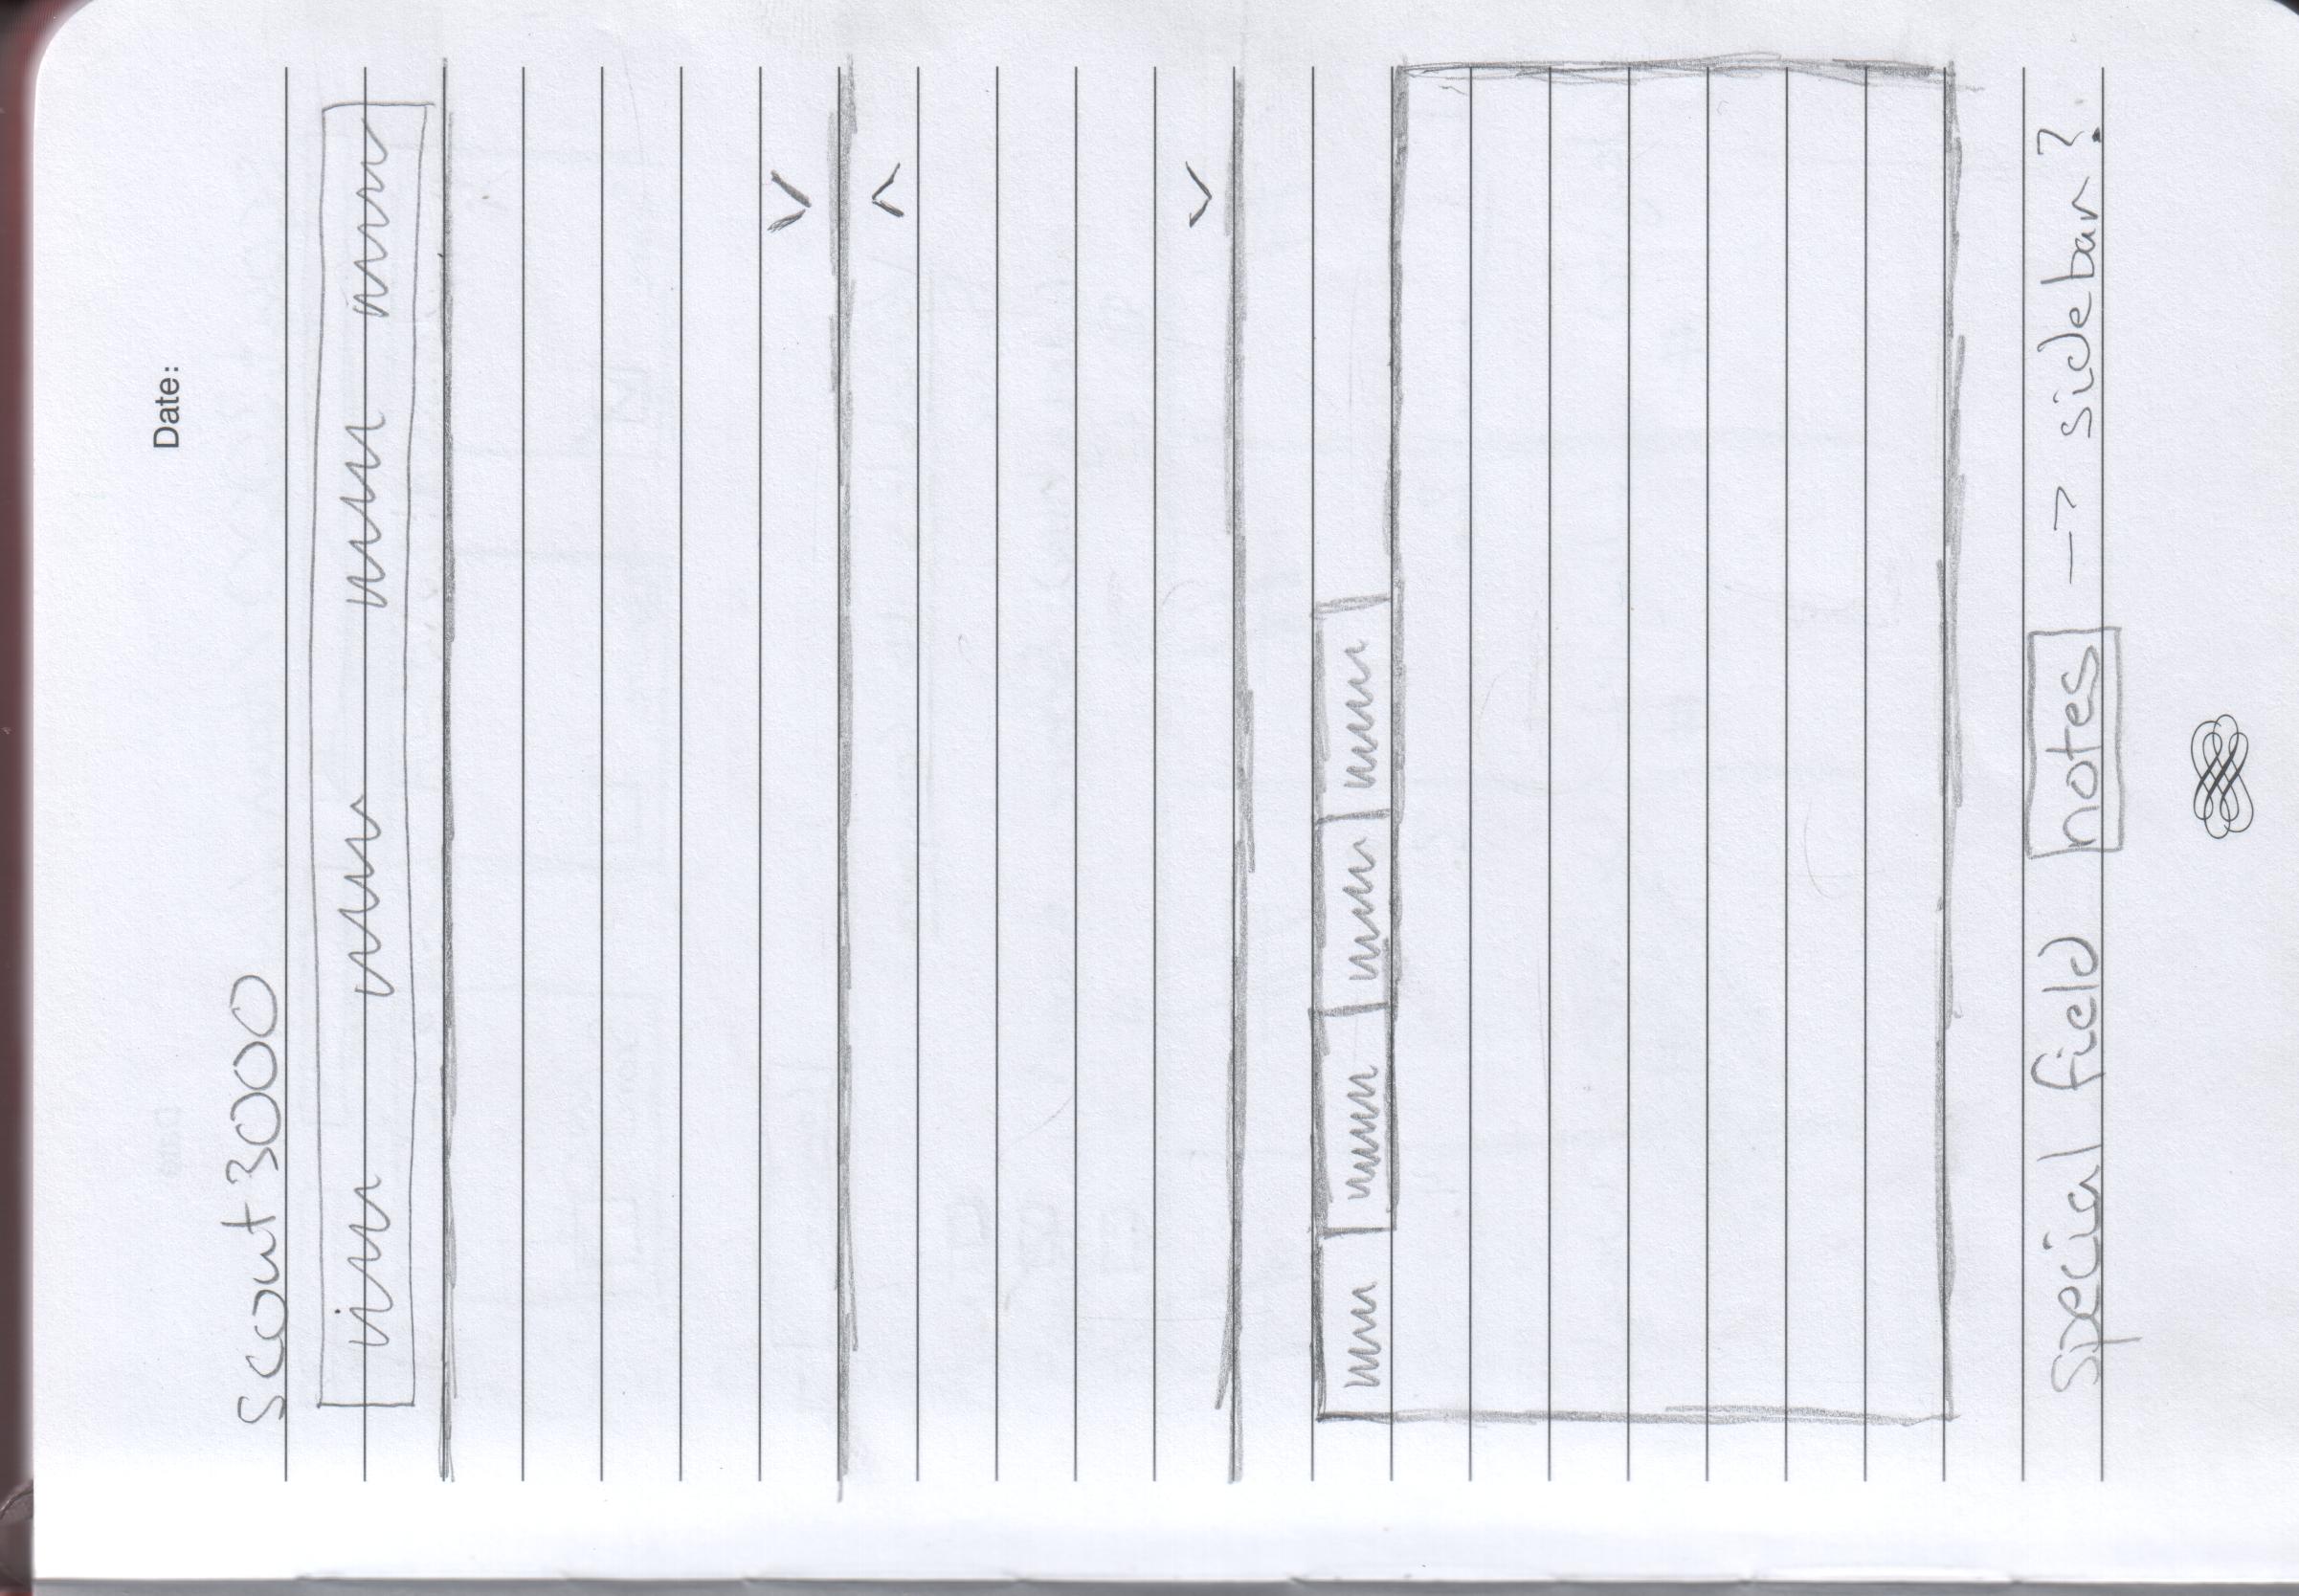 Date:
scout3000
special field notes -> sidebar?